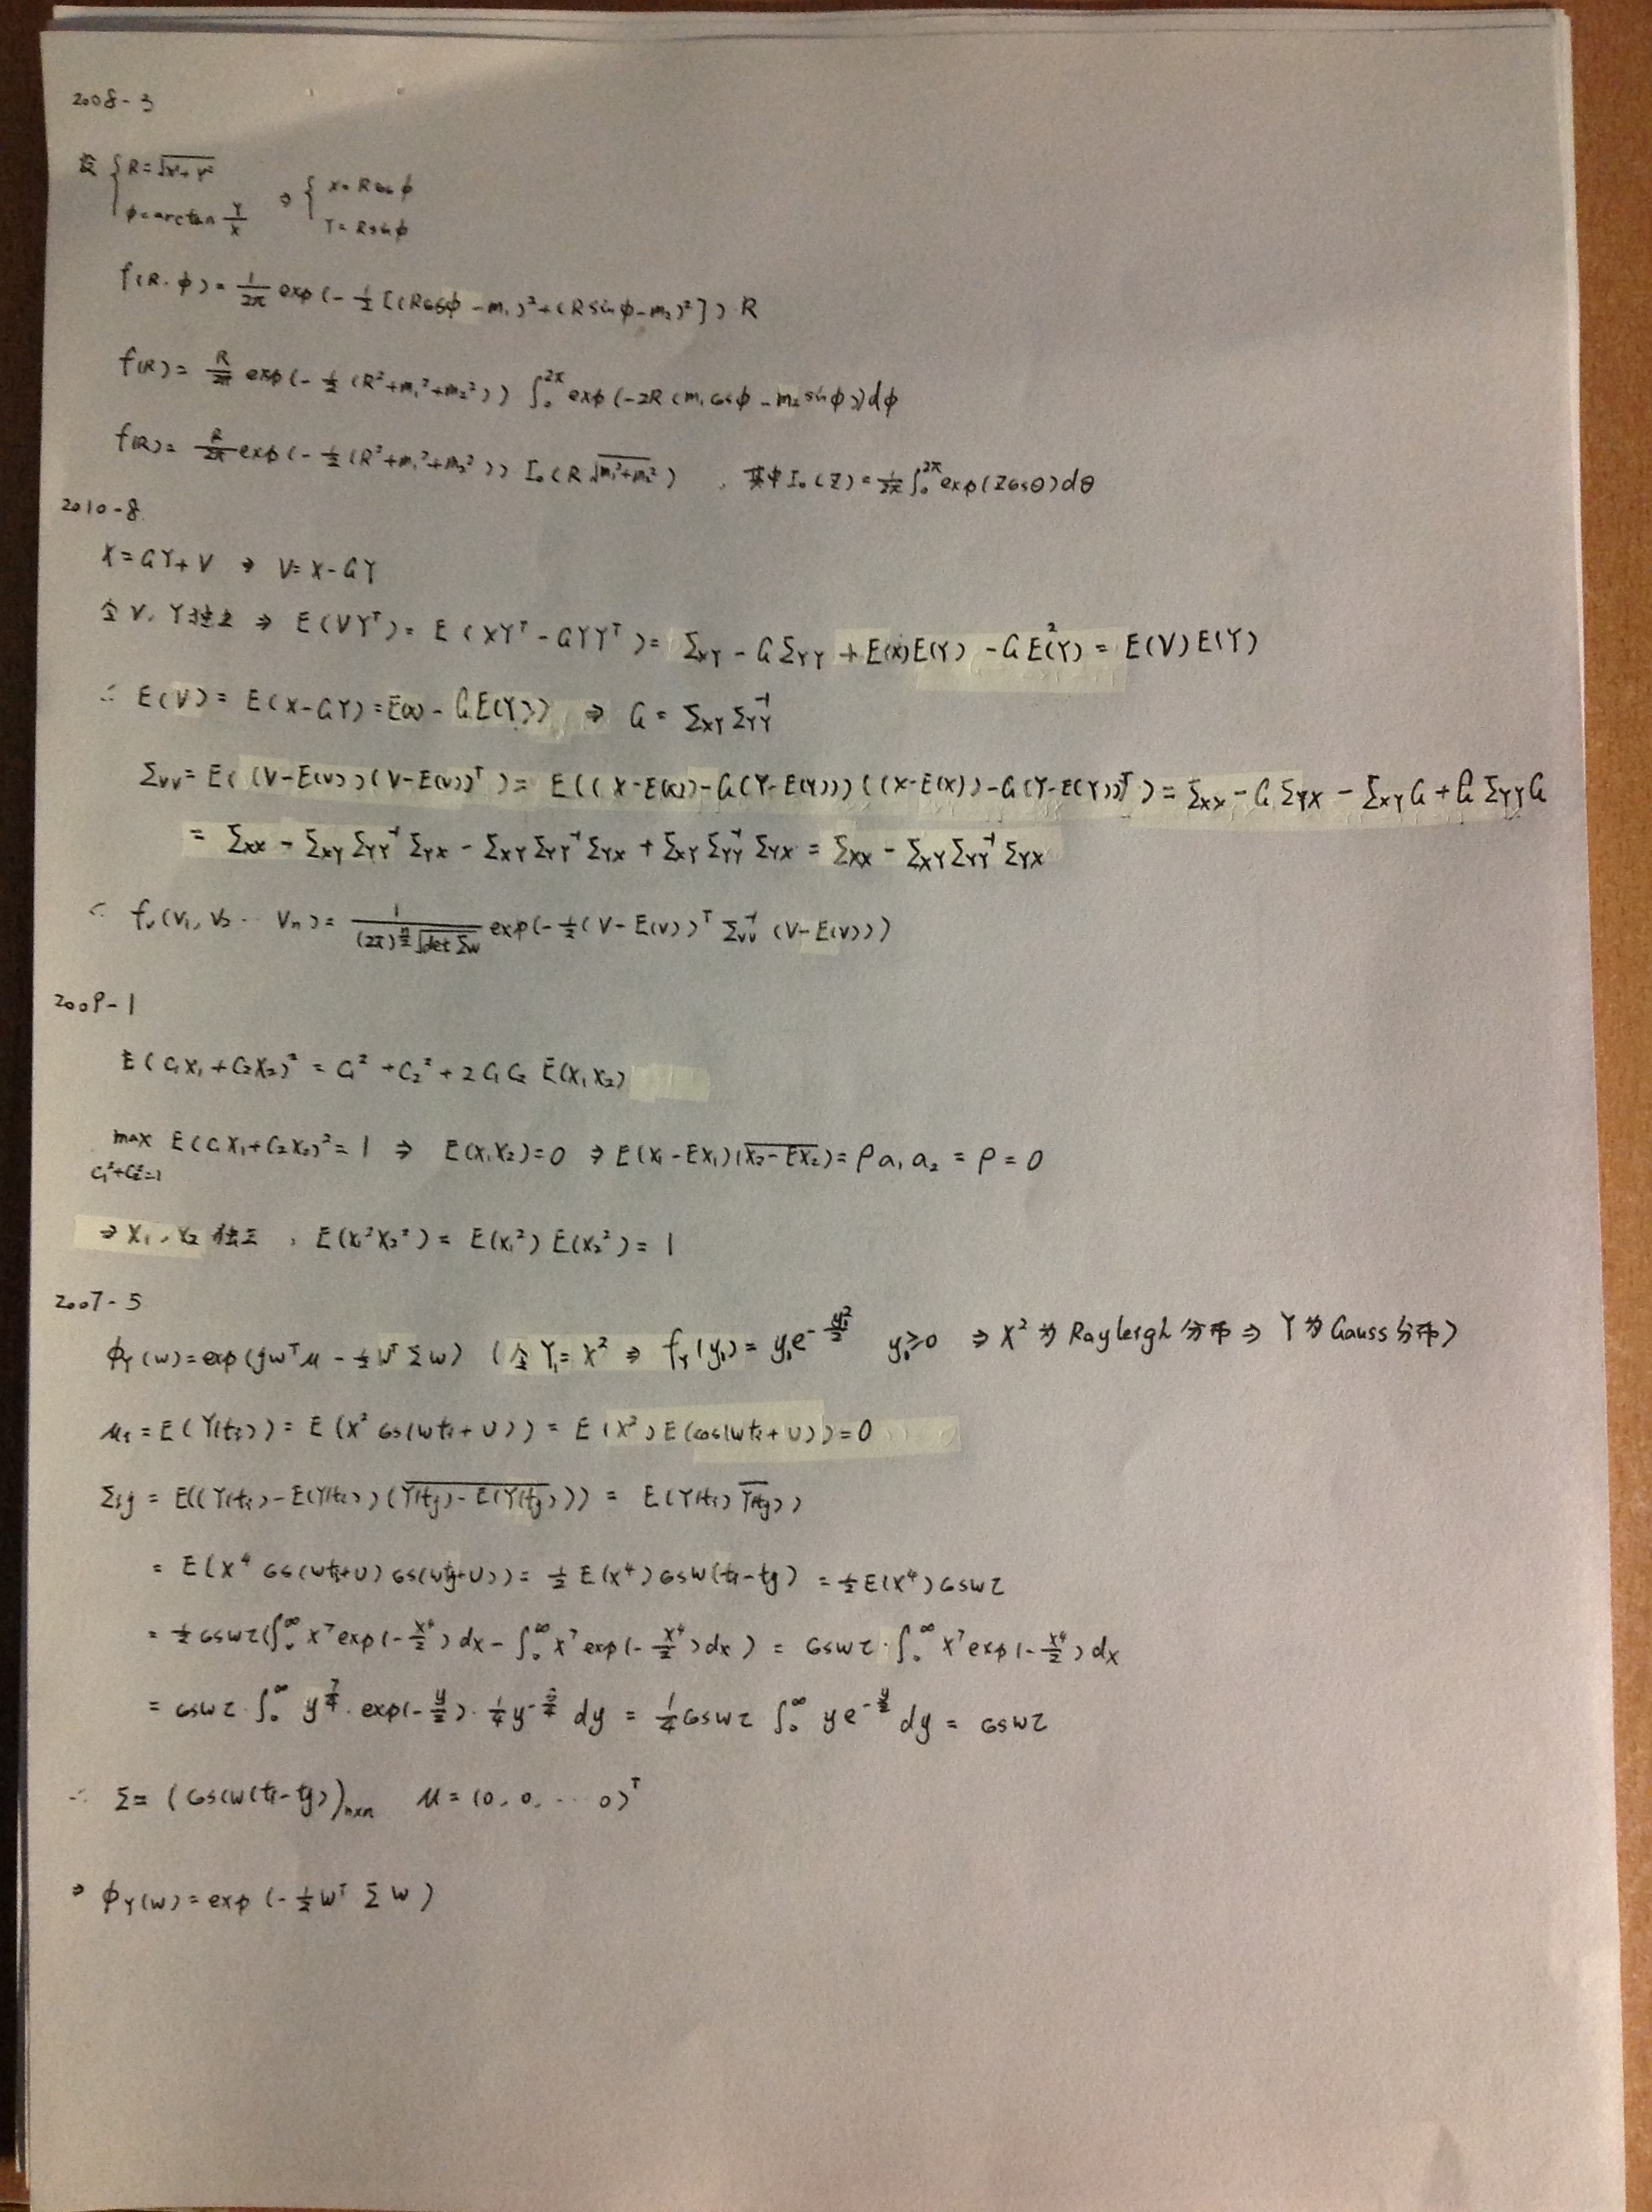 2008-3
设 { R=√(X²+Y²)   ⇒ { X=Rcosφ
φ=arctan Y/X   Y=Rsinφ
f(R,φ)= 1/2π exp(-½[(Rcosφ-m₁)²+(Rsinφ-m₂)²]) R
f(R)= R/2π exp(-½(R²+m₁²+m₂²)) ∫₀^2π exp(-2R(m₁cosφ-m₂sinφ))dφ
f(R)= R/2π exp(-½(R²+m₁²+m₂²)) I₀(R√(m₁²+m₂²)) , 其中I₀(Z)=1/2π ∫₀^2π exp(Zcosθ)dθ
2010-8
X=GY+V ⇒ V=X-GY
令V,Y独立 ⇒ E(VYᵀ)=E(XYᵀ-GYYᵀ)=Σ_XY-GΣ_YY+E(X)E(Y)-GE²(Y)=E(V)E(Y)
∴ E(V)=E(X-GY)=E(X)-GE(Y)) ⇒ G=Σ_XYΣ_YY⁻¹
Σ_VV=E((V-E(V))(V-E(V))ᵀ)=E((X-E(X))-G(Y-E(Y)))((X-E(X))-G(Y-E(Y))ᵀ)=Σ_XX-GΣ_YX-Σ_XYG+GΣ_YYG
=Σ_XX-Σ_XYΣ_YY⁻¹Σ_YX-Σ_XYΣ_YY⁻¹Σ_YX+Σ_XYΣ_YY⁻¹Σ_YX=Σ_XX-Σ_XYΣ_YY⁻¹Σ_YX
∴ f_v(v₁,v₂… v_n)= 1/((2π)^(n/2)√(det Σ_VV)) exp(-½(V-E(V))ᵀΣ_VV⁻¹(V-E(V)))
2009-1
E(C₁X₁+C₂X₂)²=C₁²+C₂²+2C₁C₂E(X₁X₂)
max_{C₁²+C₂²=1} E(C₁X₁+C₂X₂)²=1 ⇒ E(X₁X₂)=0 ⇒ E(X₁-EX₁)(X̅₂̅-̅E̅X̅₂̅)=ρa₁a₂=ρ=0
⇒X₁,X₂独立,E(X₁²X₂²)=E(X₁²)E(X₂²)=1
2007-5
φ_Y(w)=exp(jwᵀμ-½wᵀΣw) (令Y₁=X² ⇒ f_Y(y₁)=y₁e^(-y₁²/2) y₁≥0 ⇒X²为Rayleigh分布⇒Y为Gauss分布)
μ_i=E(Y(t_i))=E(X²cos(wt_i+U))=E(X²)E(cos(wt_i+U))=0
Σ_ij=E((Y(t_i)-E(Y(t_i))(Y̅(̅t̅_j̅)̅-̅E̅(̅Y̅(̅t̅_j̅)̅))=E(Y(t_i)Y̅(̅t̅_j̅)̅)
=E(X⁴cos(wt_i+U)cos(wt_j+U))=½E(X⁴)cosw(t_i-t_j)=½E(X⁴)coswτ
=½coswτ(∫₀^∞ x⁷exp(-x⁴/2)dx-∫₀^∞ x⁷exp(-x⁴/2)dx)=coswτ·∫₀^∞ x⁷exp(-x⁴/2)dx
=coswτ·∫₀^∞ y^(7/4)·exp(-y/2)·¼y^(-3/4)dy=¼coswτ∫₀^∞ ye^(-y/2)dy=coswτ
∴ Σ=(cos(w(t_i-t_j))_{n×n} μ=(0,0,…0)ᵀ
⇒ φ_Y(w)=exp(-½wᵀΣw)